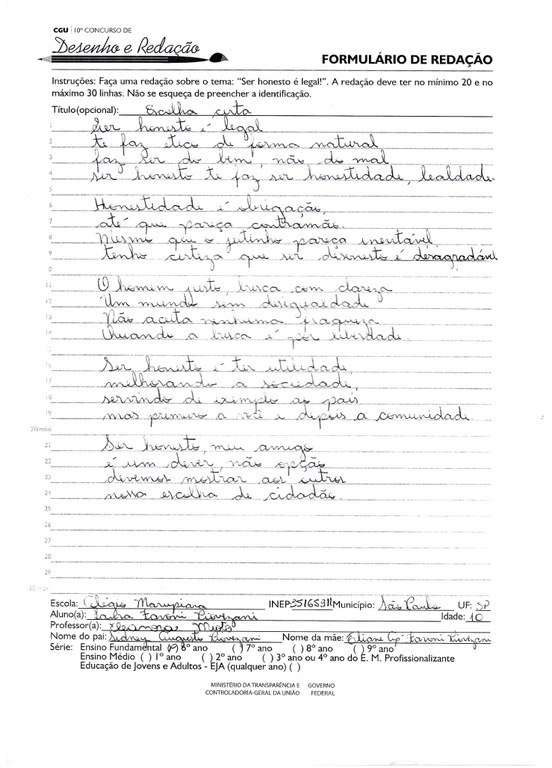 CGU | 10º CONCURSO DE
Desenho e Redação
FORMULÁRIO DE REDAÇÃO
Instruções: Faça uma redação sobre o tema: "Ser honesto é legal!". A redação deve ter no mínimo 20 e no
máximo 30 linhas. Não se esqueça de preencher a identificação.
Título(opcional): Escolha certa
1 Ser honesto é legal
2 te faz ético de forma natural
3 faz ser do bem, não do mal
4 ser honesto te faz ser honestidade, lealdade.
5
6 Honestidade é obrigação,
7 até que pareça contramão.
8 Mesmo que o jeitinho pareça inevitável,
9 tenho certeza que ser desonesto é desagradável
10
11 O homem justo, busca com clareza
12 Um mundo sem desigualdade
13 Não aceita nenhuma fraqueza
14 Quando a busca é por liberdade.
15
16 Ser honesto é ter utilidade,
17 melhorando a sociedade,
18 servindo de exemplo ao país
19 mas primeiro a você e depois a comunidade
20(mínimo)
21 Ser honesto, meu amigo
22 é um dever, não opção
23 devemos mostrar aos outros
24 nossa escolha de cidadão.
25
26
27
28
29
Escola: Colégio Marupiara INEP: Município: São Paulo UF: SP
Aluno(a): Idade: 10
Professor(a): Eleonora
Nome do pai: Sidney Augusto Nome da mãe: Eliane Ap.
Série: Ensino Fundamental (x) 6º ano ( ) 7º ano ( ) 8º ano ( ) 9º ano
Ensino Médio ( ) 1º ano ( ) 2º ano ( ) 3º ano ou 4º ano do E. M. Profissionalizante
Educação de Jovens e Adultos - EJA (qualquer ano) ( )
MINISTÉRIO DA TRANSPARÊNCIA E GOVERNO
CONTROLADORIA-GERAL DA UNIÃO FEDERAL